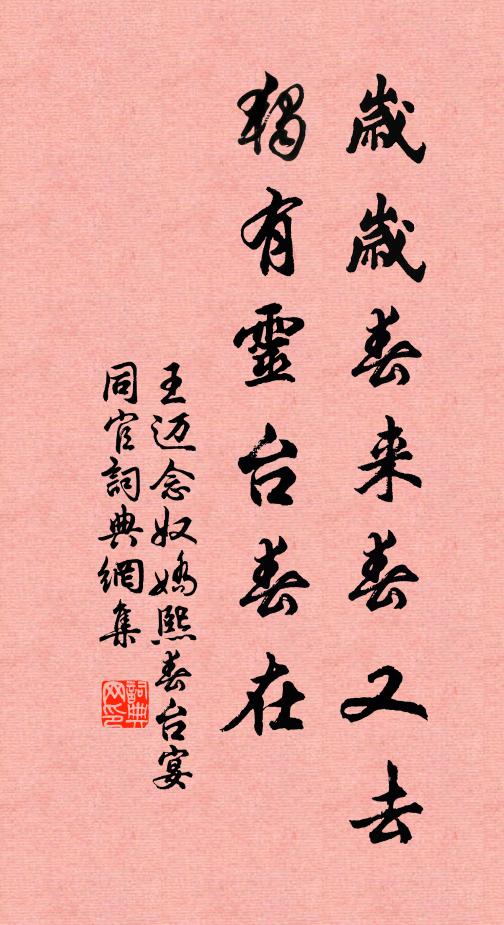 歲歲春来春又去
獨有靈台春在
王迈念奴嬌熙春台宴
同官詞典網集
詞典网印